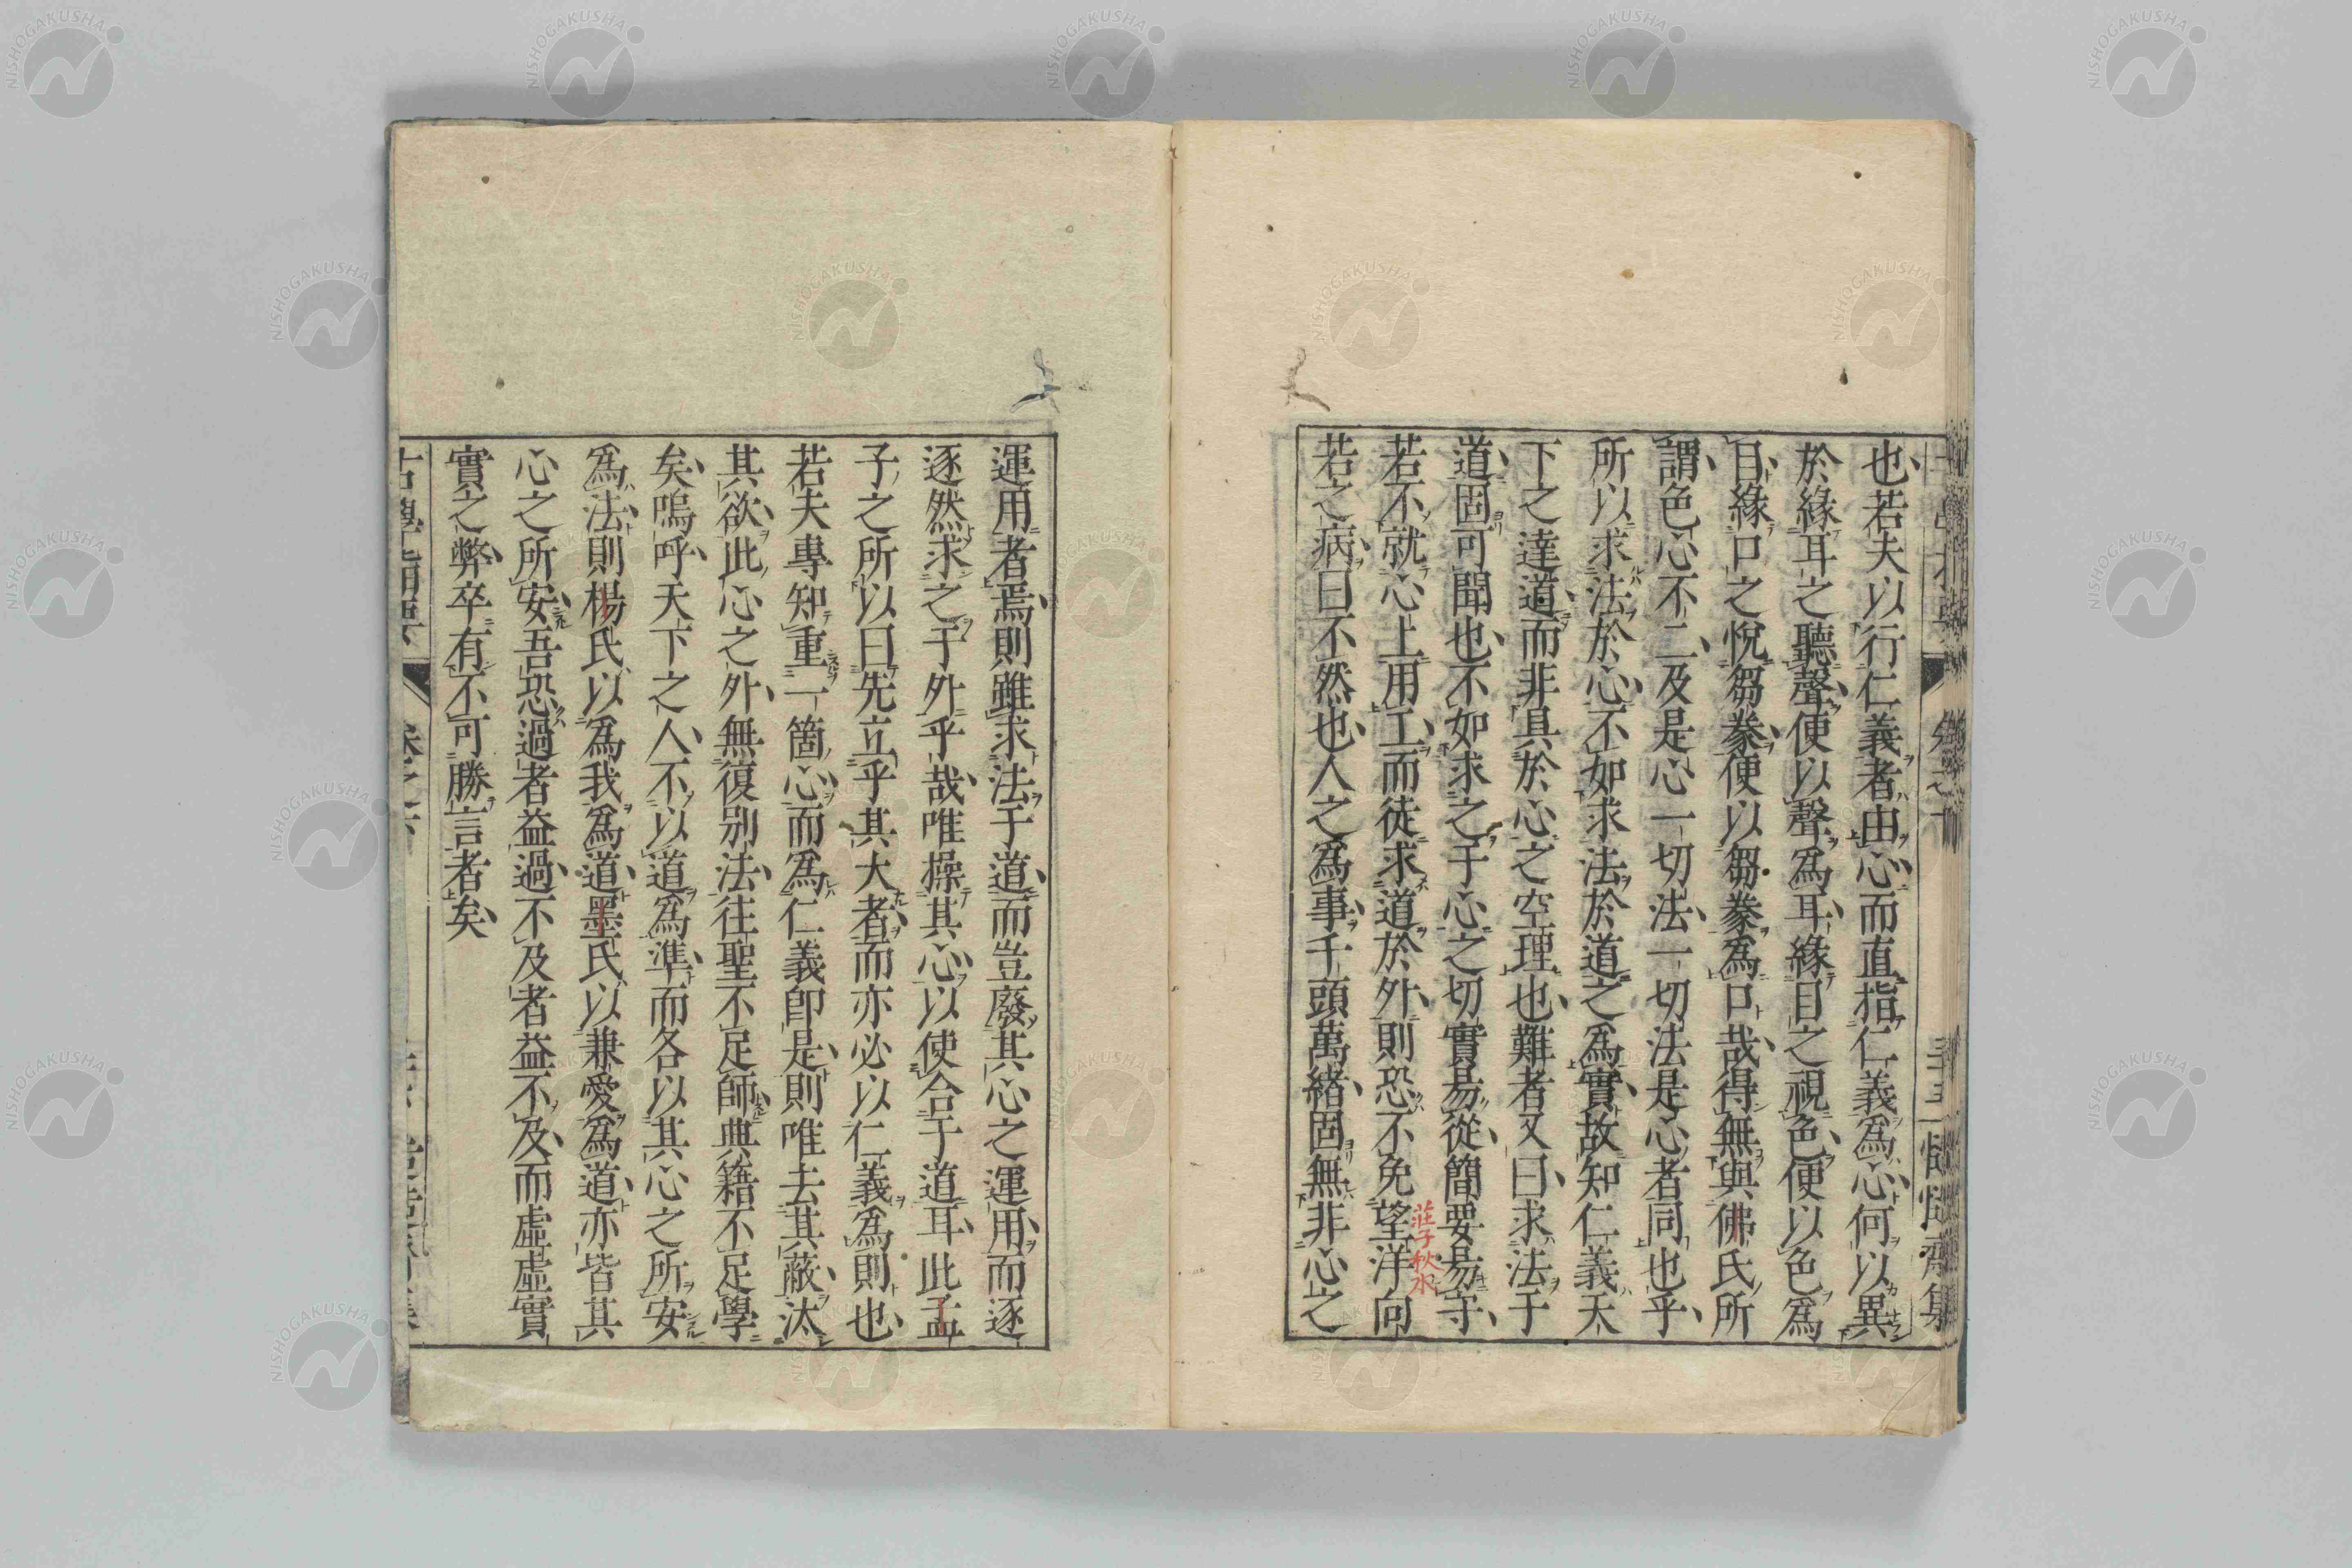 也若夫以行仁義者由心而直指仁義爲心何以異
於緣耳之聽聲便以聲爲耳緣目之視色便以色爲
目緣口之悅芻豢便以芻豢爲口哉得無與佛氏所
謂色心不二及是心一切法一切法是心者同也乎
所以求法於心不如求法於道之爲實故知仁義天
下之達道而非具於心之空理也難者又曰求法于
道固可聞也不如求之于心之切實易從簡要易守
莊子秋水
若不就心上用工而徒求道於外則恐不免望洋向
若之病曰不然也人之爲事千頭萬緒固無非心之
運用者焉則雖求法于道而豈廢其心之運用而逐
逐然求之于外乎哉唯操其心以使合于道耳此孟
子之所以曰先立乎其大者而亦必以仁義爲則也
若夫專知重一箇心而爲仁義卽是則唯去其蔽汰
其欲此心之外無復別法往聖不足師典籍不足學
矣嗚呼天下之人不以道爲準而各以其心之所安
爲法則楊氏以爲我爲道墨氏以兼愛爲道亦皆其
心之所安吾恐過者益過不及者益不及而虛虛實
實之弊卒有不可勝言者矣
NISHOGAKUSHA